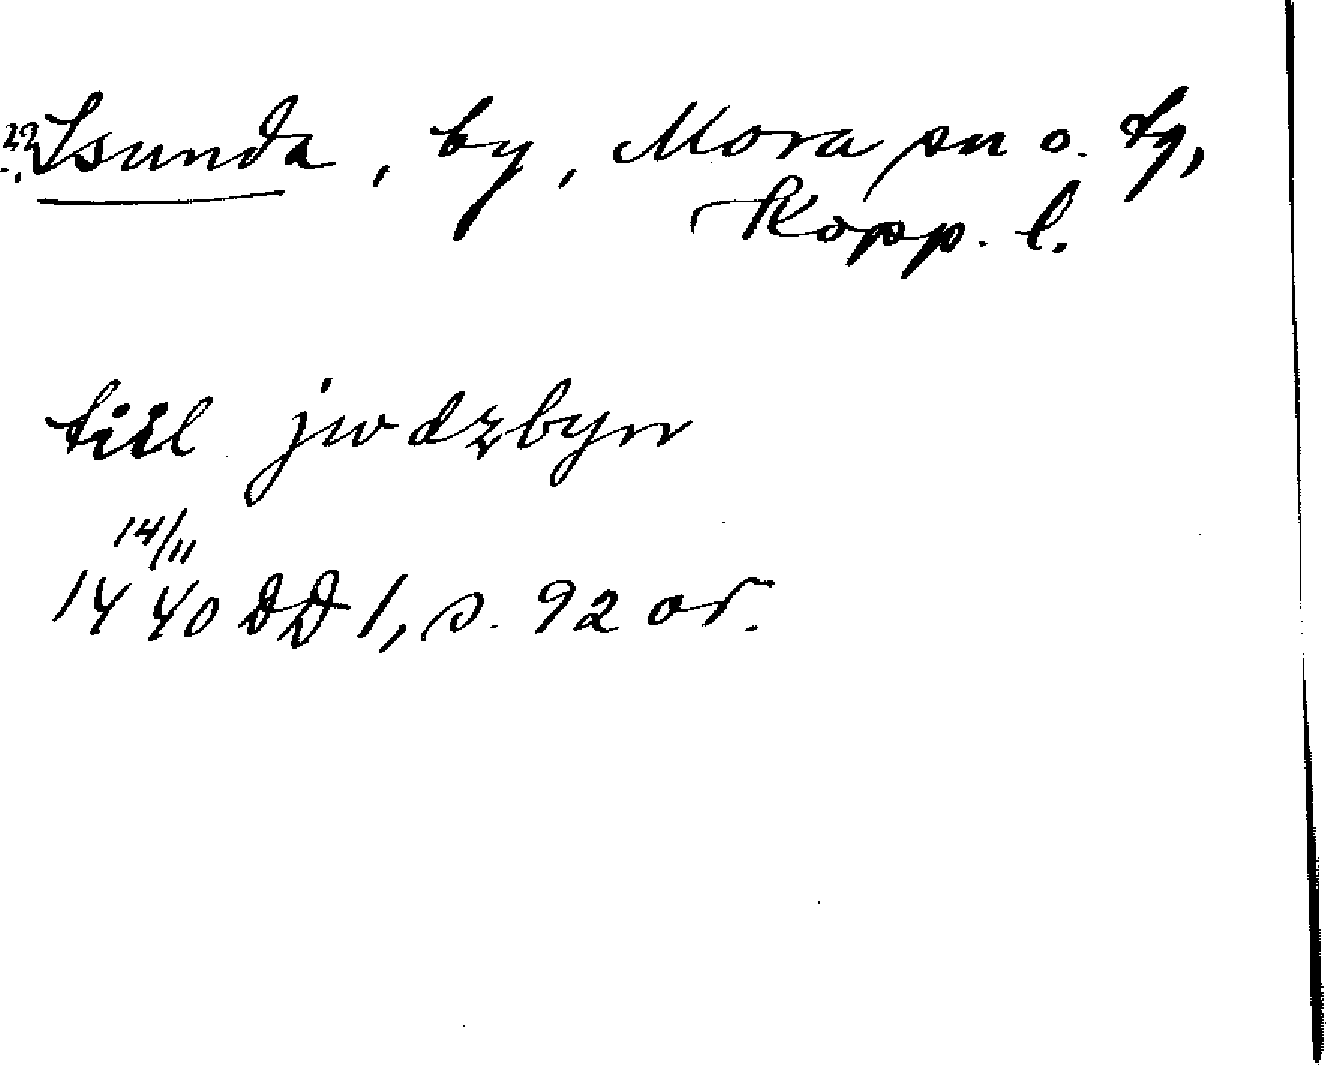 Isunda, by, Mora sn o. tg,
Kopp. l.
till jwdzbyn
14/11
1440 DD 1, s. 92 or.